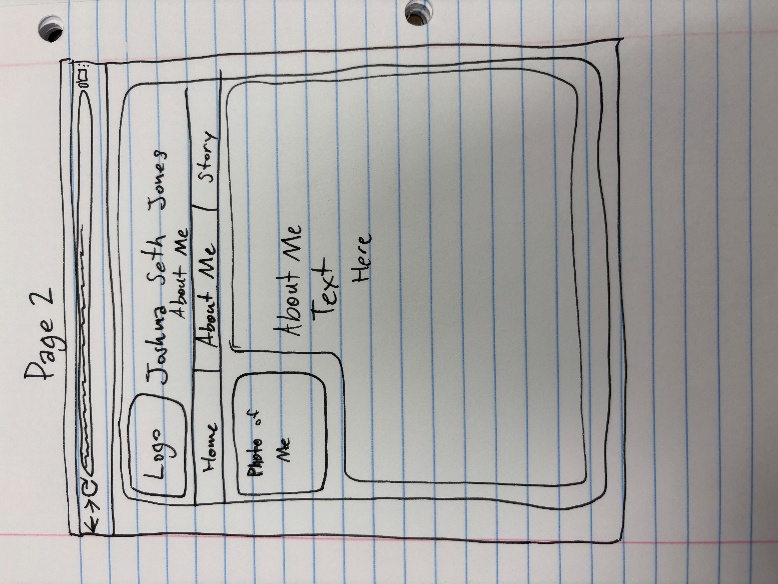 Page 2
Logo
Joshua Seth Jones
About Me
Home
About Me
Story
Photo of
Me
About Me
Text
Here